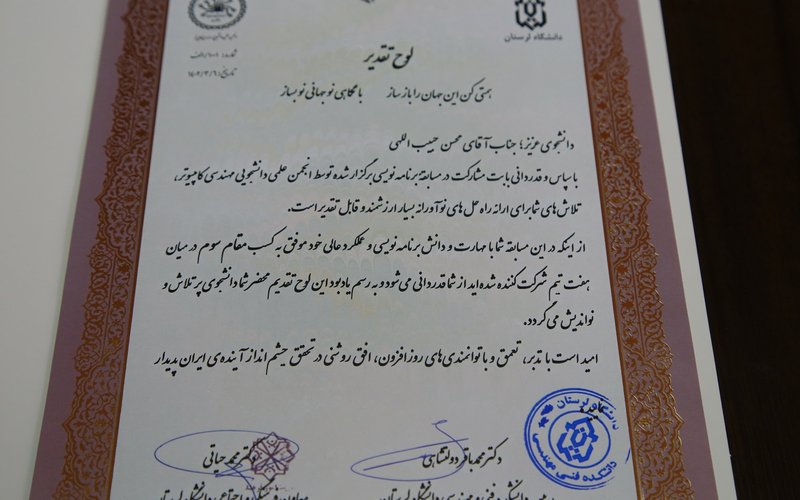 دانشگاه لرستان
شماره: ۱/۶۰۰/الف
تاریخ: ۱۴۰۲/۳/۶
لوح تقدیر
همتی کن این جهان را باز ساز با نگاهی نو جهانی نو بساز
دانشجوی عزیز؛ جناب آقای محسن حبیب اللهی
با سپاس و قدردانی بابت مشارکت در مسابقه برنامه نویسی برگزار شده توسط انجمن علمی دانشجویی مهندسی کامپیوتر،
تلاش های شما برای ارائه راه حل های نوآورانه بسیار ارزشمند و قابل تقدیر است.
از اینکه در این مسابقه شما با مهارت و دانش برنامه نویسی و عملکرد عالی خود موفق به کسب مقام سوم در میان
هفت تیم شرکت کننده شده اید از شما قدردانی می‌شود و به رسم یادبود این لوح تقدیم محضر شما دانشجوی پر تلاش و
نواندیش می گردد.
امید است با تدبر، تعمق و با توانمندی های روز افزون، افق روشنی در تحقق چشم انداز آینده ی ایران پدیدار
نمایید.
دانشگاه لرستان
دانشکده فنی مهندسی
دکتر محمد باقر دولتشاهی
دکتر محمد حیاتی